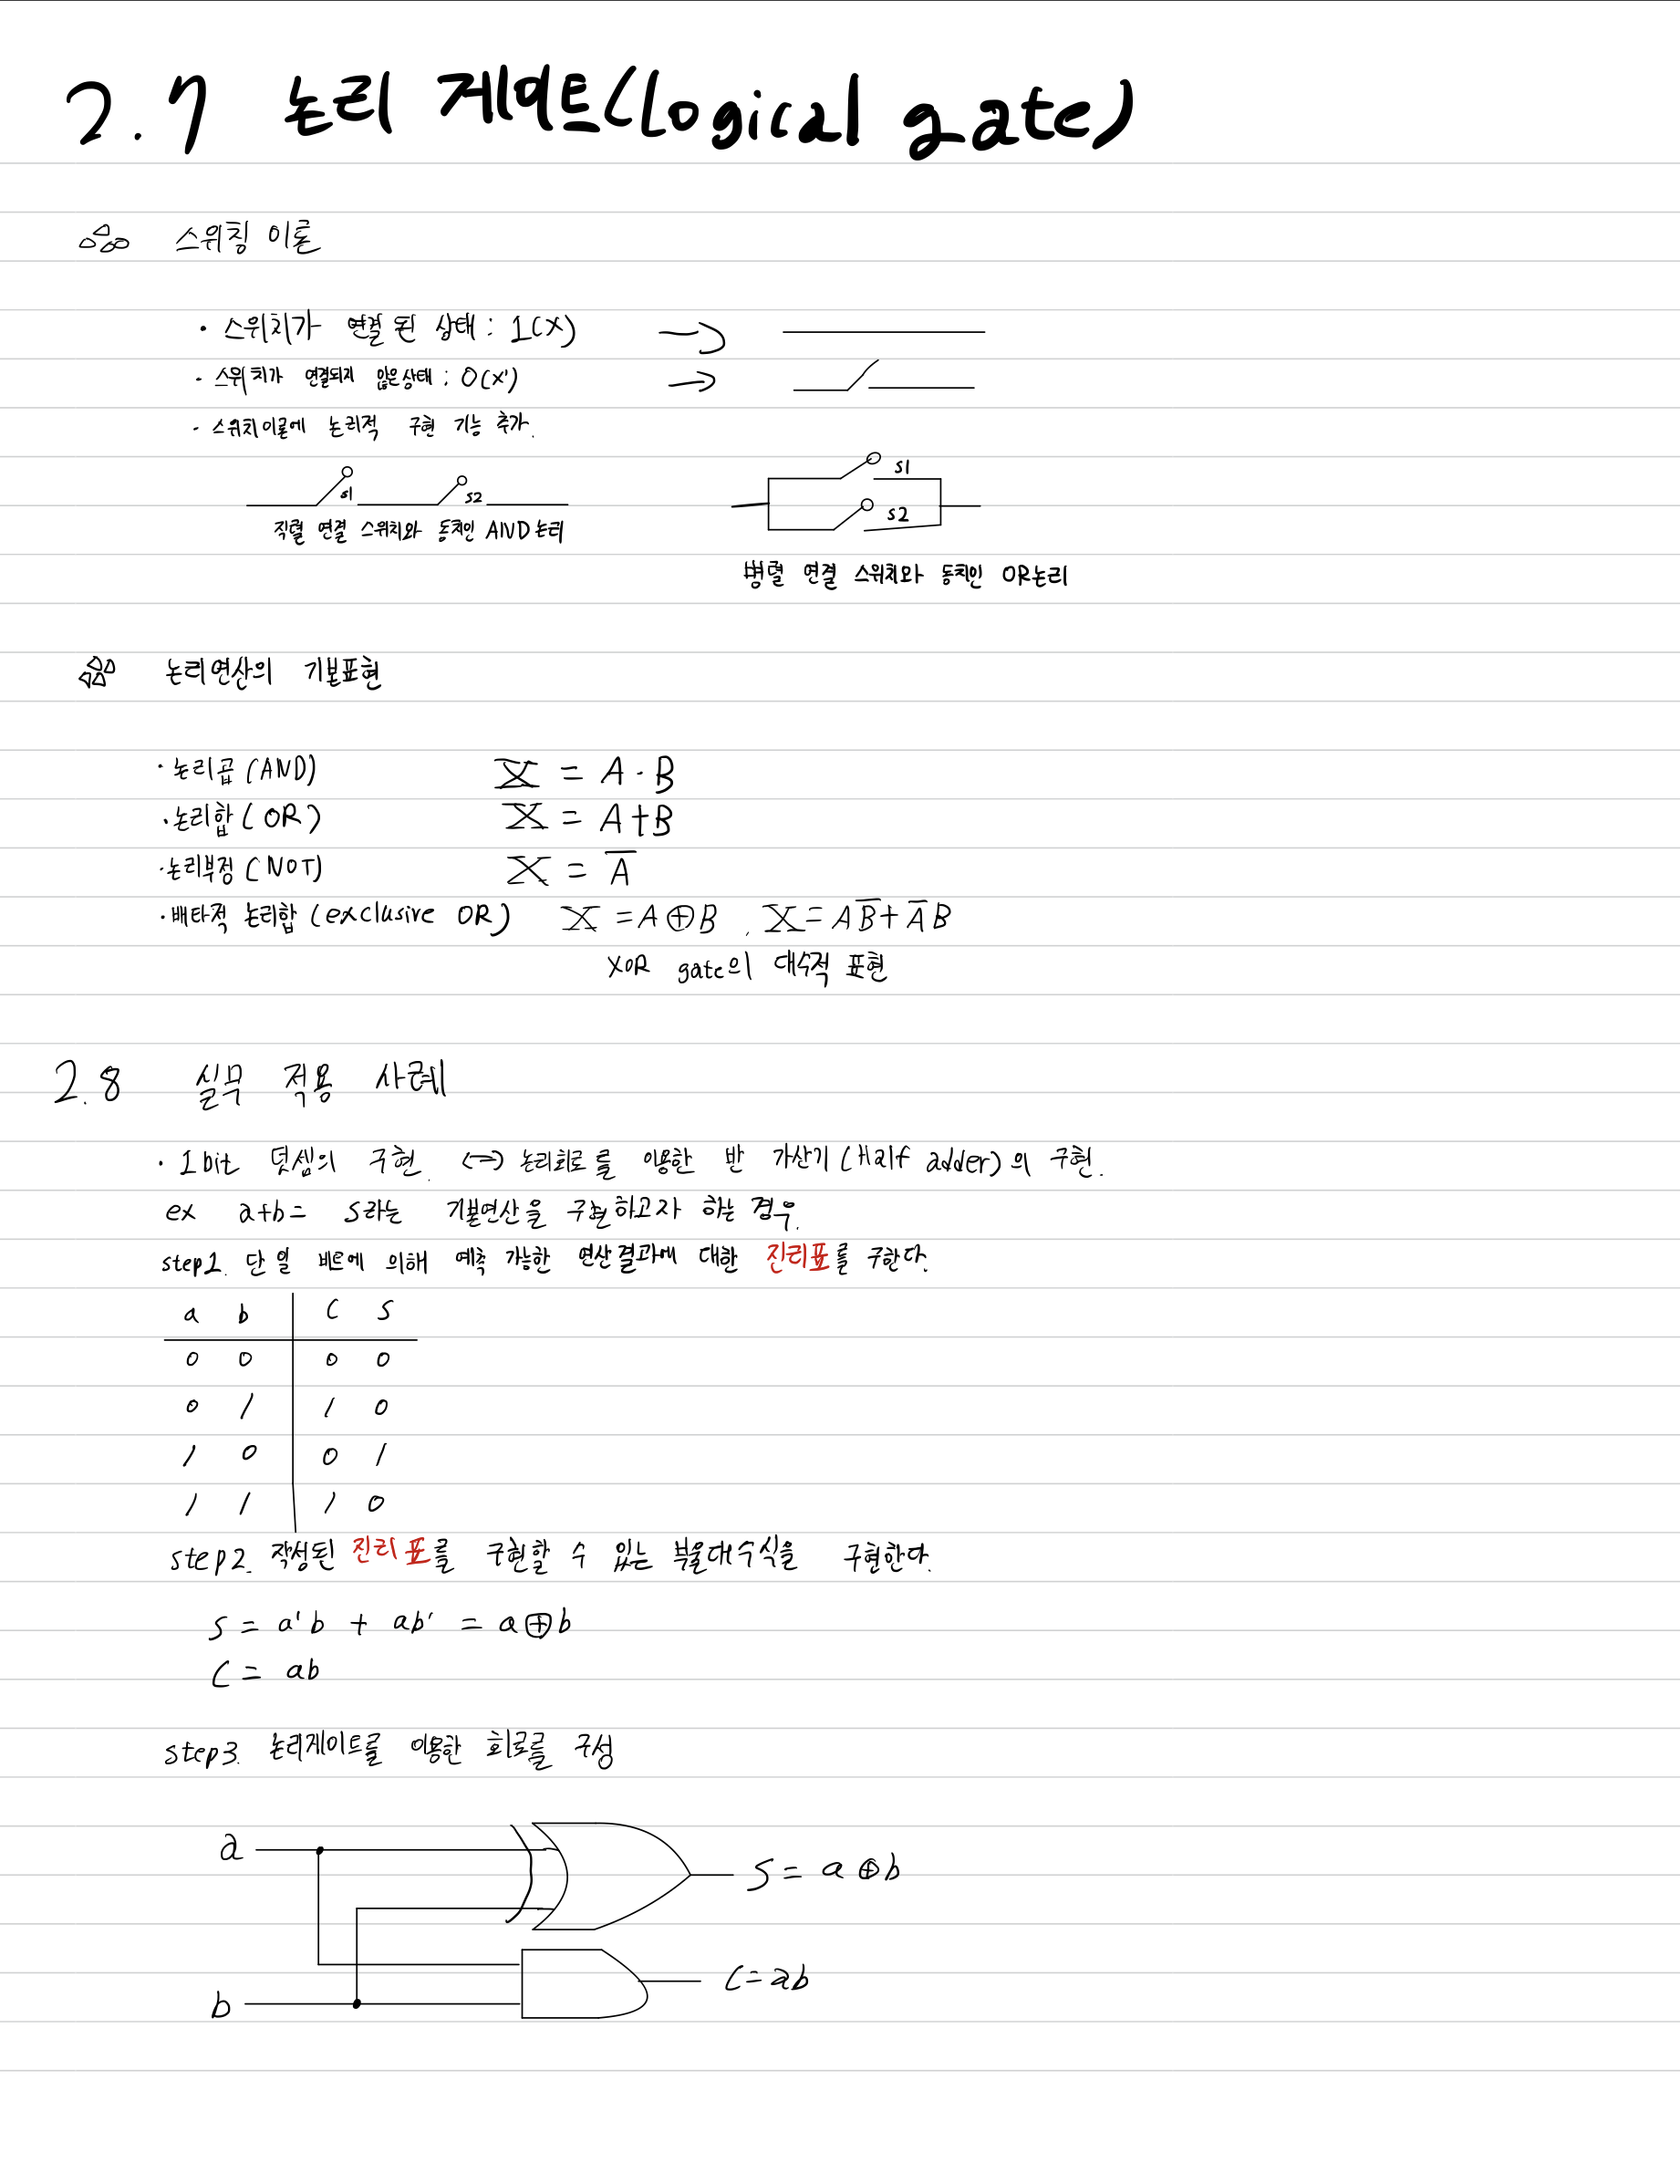 2.7 논리 게이트(logical gate)
스위칭 이론
· 스위치가 연결 된 상태 : 1(X)
· 스위치가 연결되지 않은상태 : 0(X')
· 스위치이론에 논리적 구현 기능 추가.
S1 S2
직렬 연결 스위치와 동치인 AND논리
S1
S2
병렬 연결 스위치와 동치인 OR논리
논리연산의 기본표현
· 논리곱(AND) X = A · B
· 논리합(OR) X = A+B
· 논리부정(NOT) X = A̅
· 배타적 논리합(exclusive OR) X = A⊕B, X = AB̅ + A̅B
XOR gate의 대수적 표현
2.8 실무 적용 사례
· 1bit 덧셈의 구현. <-> 논리회로를 이용한 반 가산기(Half adder)의 구현.
ex a+b= S라는 기본연산을 구현하고자 하는 경우.
step1. 단일 비트에 의해 예측 가능한 연산결과에 대한 진리표를 구한다.
a b C S
0 0 0 0
0 1 1 0
1 0 0 1
1 1 1 0
step2. 작성된 진리표를 구현할 수 있는 부울대수식을 구현한다.
S = a'b + ab' = a⊕b
C = ab
step3. 논리게이트를 이용한 회로를 구성
a S = a⊕b
b C = ab